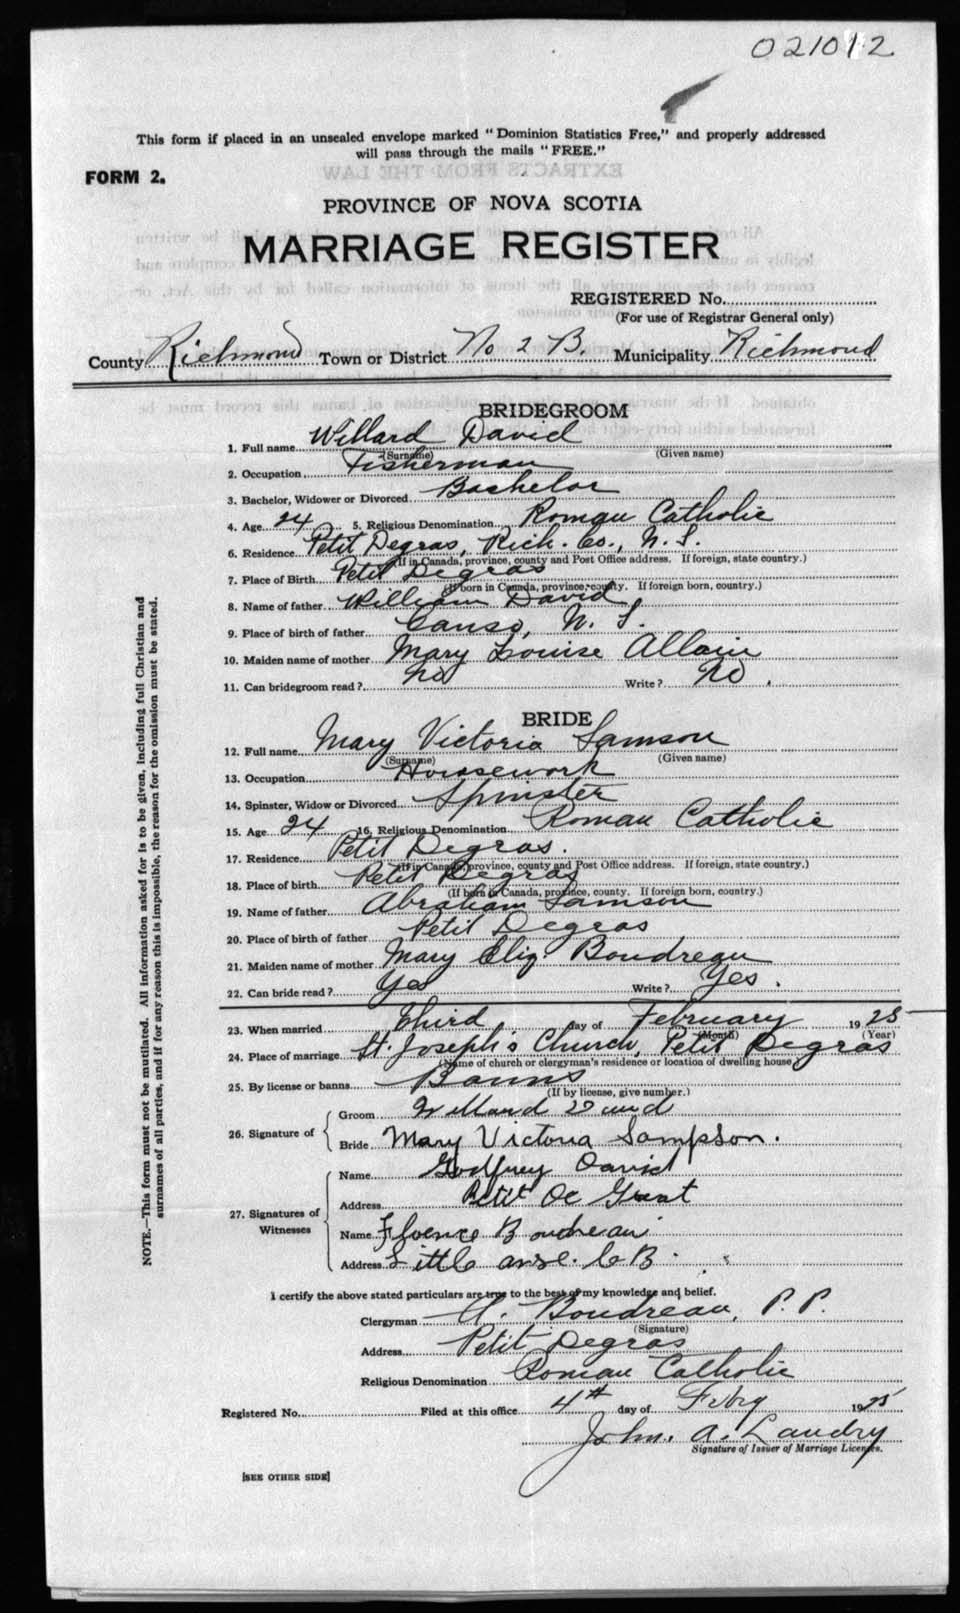 021012
This form if placed in an unsealed envelope marked "Dominion Statistics Free," and properly addressed
will pass through the mails "FREE."
FORM 2.
EXTRACTS FROM THE LAW
PROVINCE OF NOVA SCOTIA
MARRIAGE REGISTER
REGISTERED No.
(For use of Registrar General only)
County Richmond Town or District No 2 B. Municipality Richmond
BRIDEGROOM
1. Full name Willard David
(Surname) (Given name)
2. Occupation Fisherman
3. Bachelor, Widower or Divorced Bachelor
4. Age 24 5. Religious Denomination Roman Catholic
6. Residence Petit Degras, Rich. Co., N. S.
(If in Canada, province, county and Post Office address. If foreign, state country.)
7. Place of Birth Petit Degras
(If born in Canada, province, county. If foreign born, country.)
8. Name of father William David
9. Place of birth of father Canso, N. S.
10. Maiden name of mother Mary Louise Allain
11. Can bridegroom read? No Write? No.
BRIDE
12. Full name Mary Victoria Samson
(Surname) (Given name)
13. Occupation Housework
14. Spinster, Widow or Divorced Spinster
15. Age 24 16. Religious Denomination Roman Catholic
17. Residence Petit Degras.
(If in Canada, province, county and Post Office address. If foreign, state country.)
18. Place of birth Petit Degras
(If born in Canada, province, county. If foreign born, country.)
19. Name of father Abraham Samson
20. Place of birth of father Petit Degras
21. Maiden name of mother Mary Eliz. Boudreau
22. Can bride read? Yes Write? Yes.
23. When married Third day of February 1925
(Month) (Year)
24. Place of marriage St. Joseph's Church, Petit Degras
(Name of church or clergyman's residence or location of dwelling house.)
25. By license or banns Banns
(If by license, give number.)
26. Signature of
Groom Willard David
Bride Mary Victoria Sampson.
27. Signatures of Witnesses
Name Godfrey David
Address Petit De Grat
Name Florence Boudreau
Address Little anse. C B.
I certify the above stated particulars are true to the best of my knowledge and belief.
Clergyman A. Boudreau, P. P.
(Signature)
Address Petit Degras
Religious Denomination Roman Catholic
Registered No. Filed at this office 4th day of Feby 1925
John. A. Landry
Signature of Issuer of Marriage Licenses.
[SEE OTHER SIDE]
NOTE.—This form must not be mutilated. All information asked for is to be given, including full Christian and
surnames of all parties, and if for any reason this is impossible, the reason for the omission must be stated.